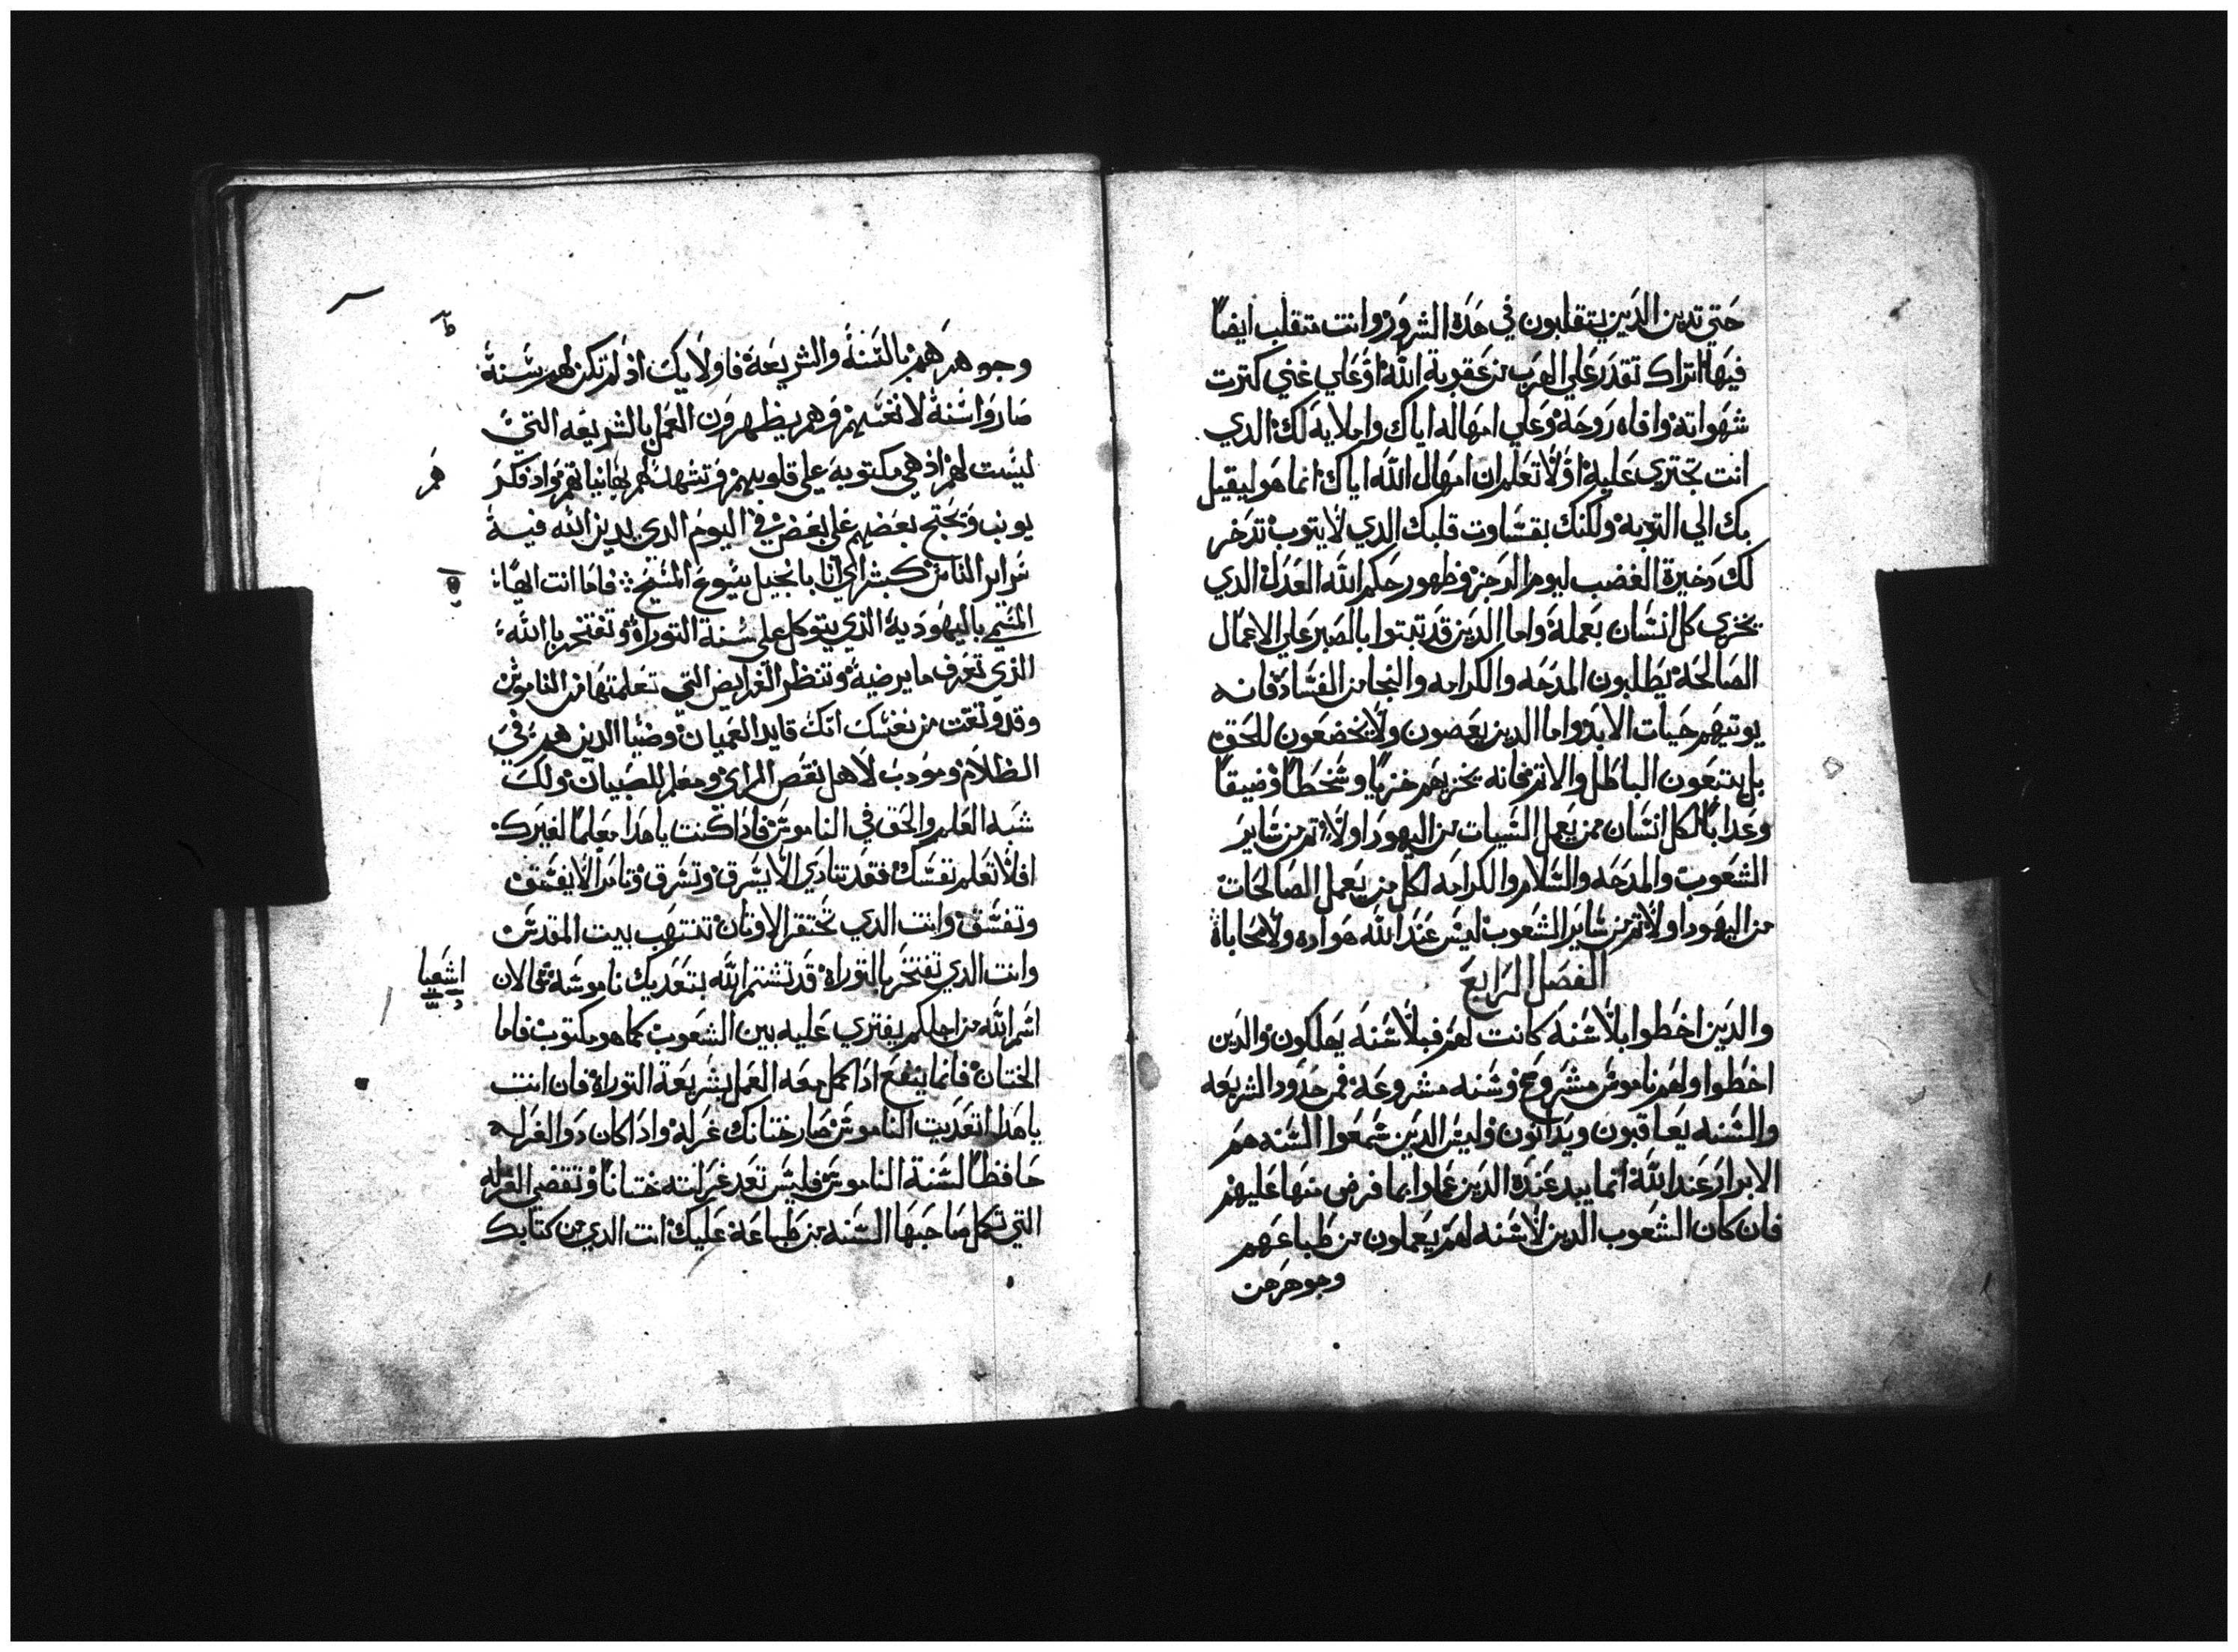 حتي تدين الدين يتقلبون في هده الشرور وانت متقلب ايضاً
فيها اتراك تقدر علي الهرب من عقوبة الله او علي غني كترت
شهواته وافاه روحه وعلي امهاله اياك واملايه لك الدي
انت تجتري عليه اولا تعلم ان امهال الله اياك انما هو ليقبل
بك الي التوبه ولكنك بقساوت قلبك الدي لا يتوب تدخر
لك دخيرة الغضب ليوم الرجز وظهور حكم الله العدل الدي
يجزي كل انسان بعمله واما الدين قد تبتوا بالصبر علي الاعمال
الصالحه يطلبون المدحه والكرامه والنجا من الفساد فانه
يوتيهم حيات الابد واما الدين يعصون ولا يخضعون للحق
بل يتبعون الباطل والاتم فانه يخزيهم خزيًا وسخطًا وضيقًا
وعدابًا لكل انسان ممن يعمل السيات من اليهود اولا تم من ساير
الشعوب والمدحه والسلام والكرامه لكل من يعمل الصالحات
من اليهود اولا تم من ساير الشعوب ليس عند الله مواره ولا محاباة
الفصل الرابع
والدين اخطوا بلا سنه كانت لهم فبلا سنه يهلكون والدين
اخطوا ولهم ناموس مشروح وسنه مشروعه فمن حدود الشريعه
والسنه يعاقبون ويدانون وليس الدين سمعوا السنه هم
الابرار عند الله انما يبد عنده الدين عملوا بما فرض منها عليهم
فان كان الشعوب الدين لا سنه لهم يعملون من طباعهم
وجوهرهن
وجوهرهم بالسنة والشريعة فاولايك اذ لم تكن لهم سنة
صاروا سنة لانفسهم وهم يظهرون العمل بالشريعه التي
ليست لهم اذ هي مكتوبه علي قلوبهم وتشهد لهم بها نياتهم واد فكر
هم
يونب ويحتج بعضهم علي بعض في اليوم الدي يدين الله فيه
سراير الناس كبشراي انا بانجيل يسوع المسيح فاما انت ايها
المتسمي باليهوديه الذي يتوكل علي سنة التوراة وتفتخر بالله
الذي تعرف ما يرضيه وتنظر الفرايض التي تعلمتها من الناموس
وقد وتقت من نفسك انك قايد العميان وضيا الدين هم في
الظلام ومودب لاهل نقص الراي ومعلم للصبيان ولك
شبه العلم والحق في الناموس فاذا كنت يا هدا معلمًا لغيرك
افلا تعلم نفسك فقد تنادي الا يسرق وتسرق وتامر الا يفسق
وتفسق وانت الدي تحتقر الاوتان تنتهب بيت المقدس
وانت الدي تفتخر بالتوراة قد تشتم الله بتعديك ناموسه لان
اشعيا
اسم الله من اجلكم يفتري عليه بين الشعوب كما هو مكتوب فاما
الختان فانما ينفع ادا كمل معه العمل بشريعة التوراة فان انت
يا هدا تعديت الناموس صار ختانك غرله وادا كان دوا الغرله
حافظًا لسنة الناموس فليس تعد غرلته ختانًا وتقضي الغرله
التي تكمل صاحبها السنه من طباعه عليك انت الدي من كتابك